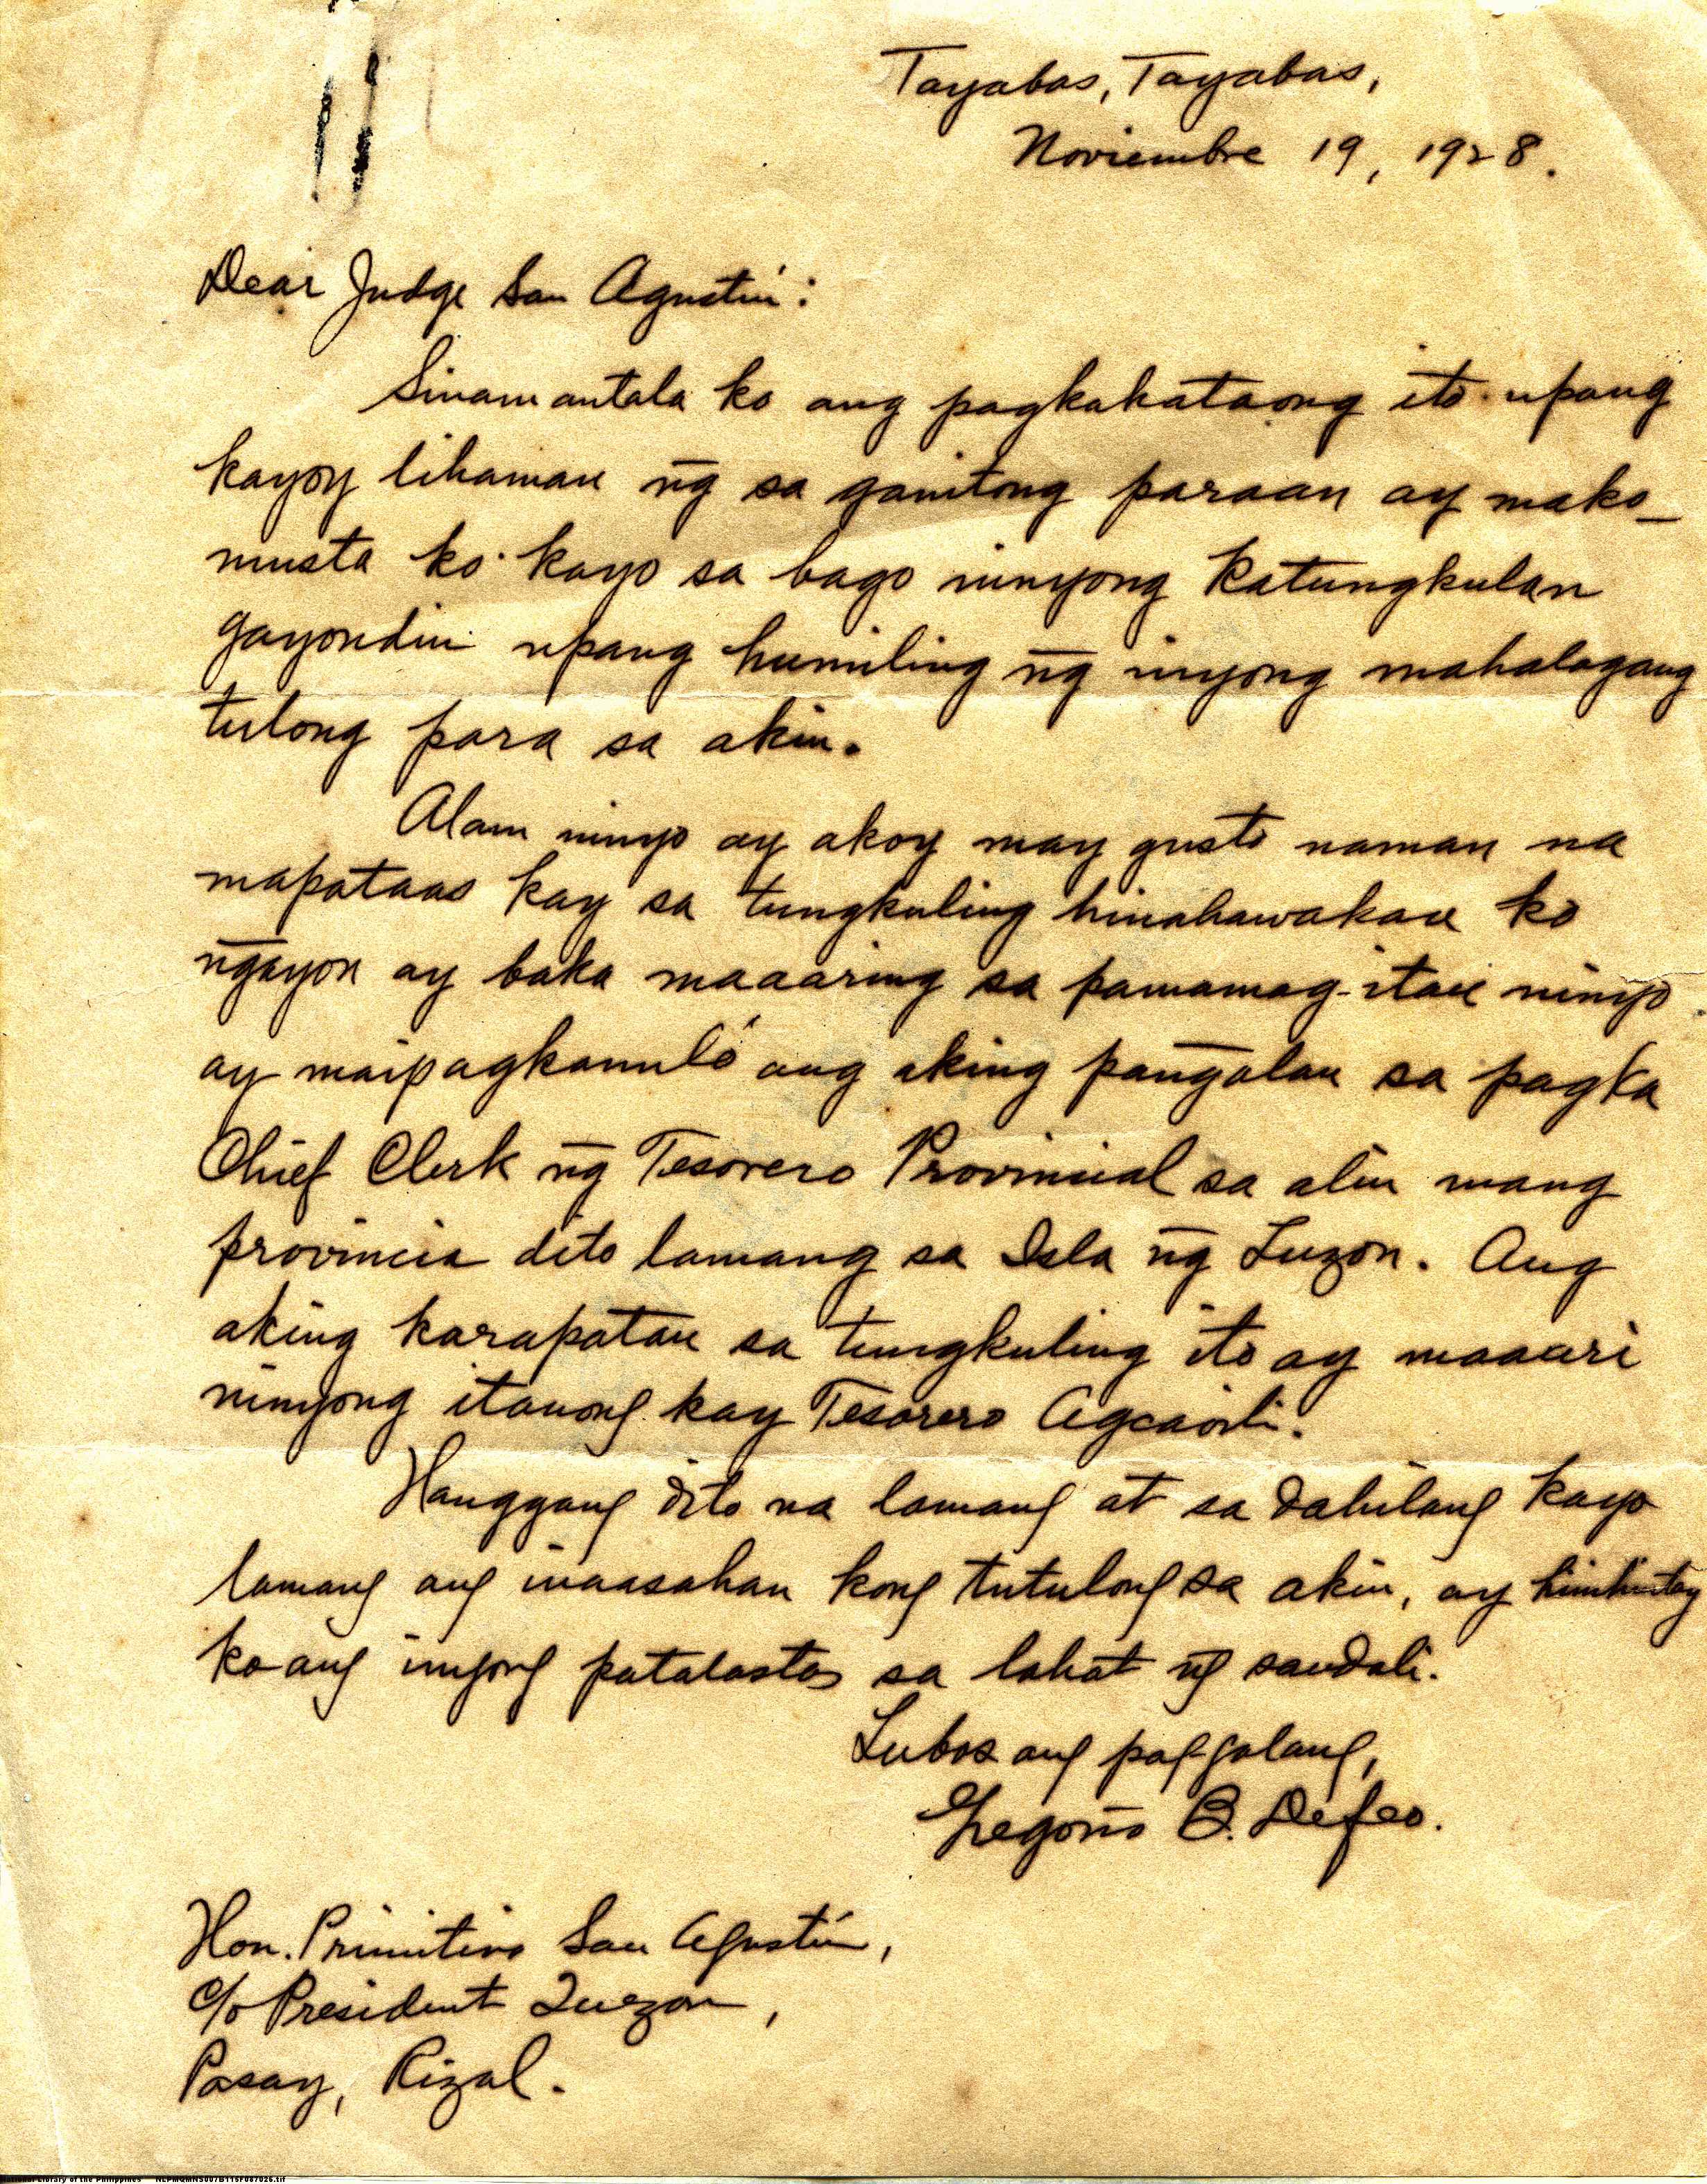 Tayabas, Tayabas,
Noviembre 19, 1928.
Dear Judge San Agustin:
Sinamantala ko ang pagkakataong ito upang
kayoy lihaman n͠g sa ganitong paraan ay mako-
musta ko kayo sa bago ninyong katungkulan
gayondin upang humiling n͠g inyong mahalagang
tulong para sa akin.
Alam ninyo ay akoy may gusto naman na
mapataas kay sa tungkuling hinahawakan ko
n͠gayon ay baka maaaring sa pamamag-itan ninyo
ay maipagkanuló ang aking pan͠galan sa pagka
Chief Clerk n͠g Tesorero Provincial sa alin mang
provincia dito lamang sa Isla n͠g Luzon. Ang
aking karapatan sa tungkuling ito ay maaari
ninyong itanong kay Tesorero Agcaoili.
Hanggang dito na lamang at sa dahilang kayo
lamang ang inaasahan kong tutulong sa akin, ay hinihintay
ko ang inyong patalastas sa lahat n͠g sandali.
Lubos ang paggalang,
Gregorio B. Defeo.
Hon. Primitivo San Agustin,
c/o President Quezon,
Pasay, Rizal.
National Library of the Philippines